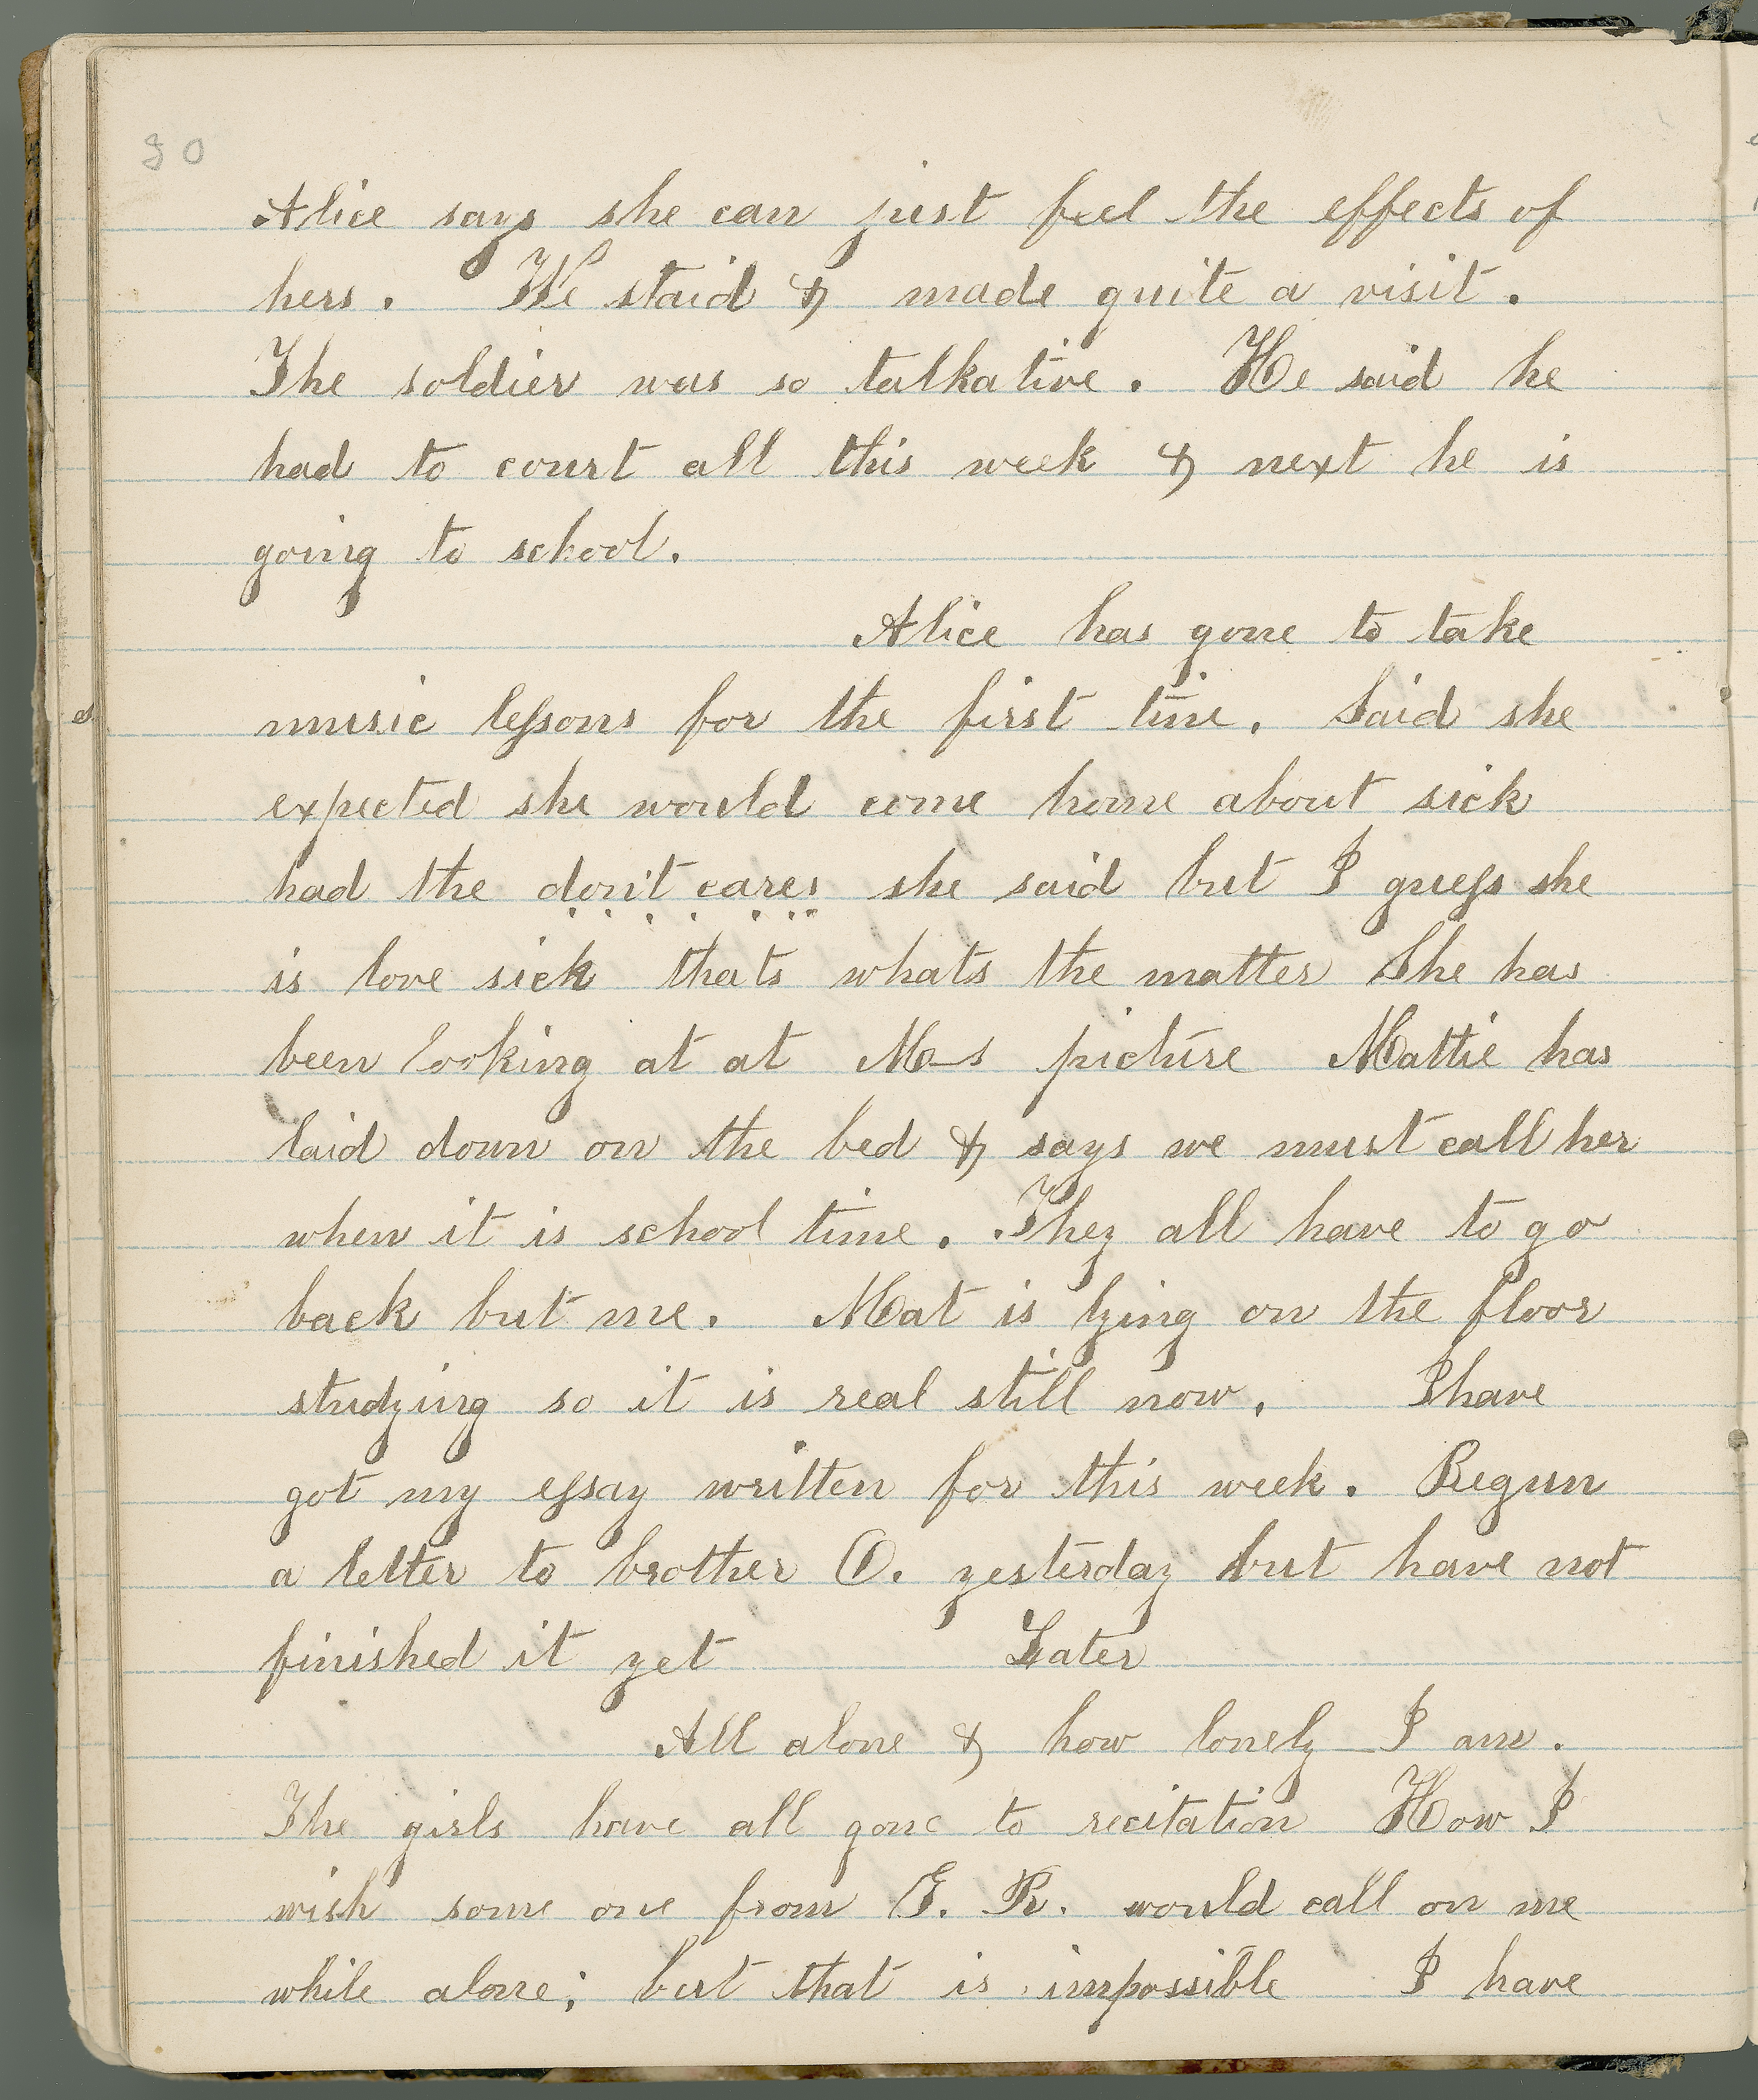 30
Alice says she can just feel the effects of
hers. We staid & made quite a visit.
The soldier was so talkative. He said he
had to court all this week & next he is
going to school.
Alice has gone to take
music lessons for the first time. Said she
expected she would come home about sick
had the don't cares she said but I guess she
is love sick thats whats the matter She has
been looking at at M—s picture Mattie has
laid down on the bed & says we must call her
when it is school time. They all have to go
back but me. Mat is lying on the floor
studying so it is real still now. I have
got my essay written for this week. Begun
a letter to brother O. yesterday but have not
finished it yet Later
All alone & how lonely I am.
The girls have all gone to recitation How I
wish some one from G. R. would call on me
while alone; but that is impossible I have